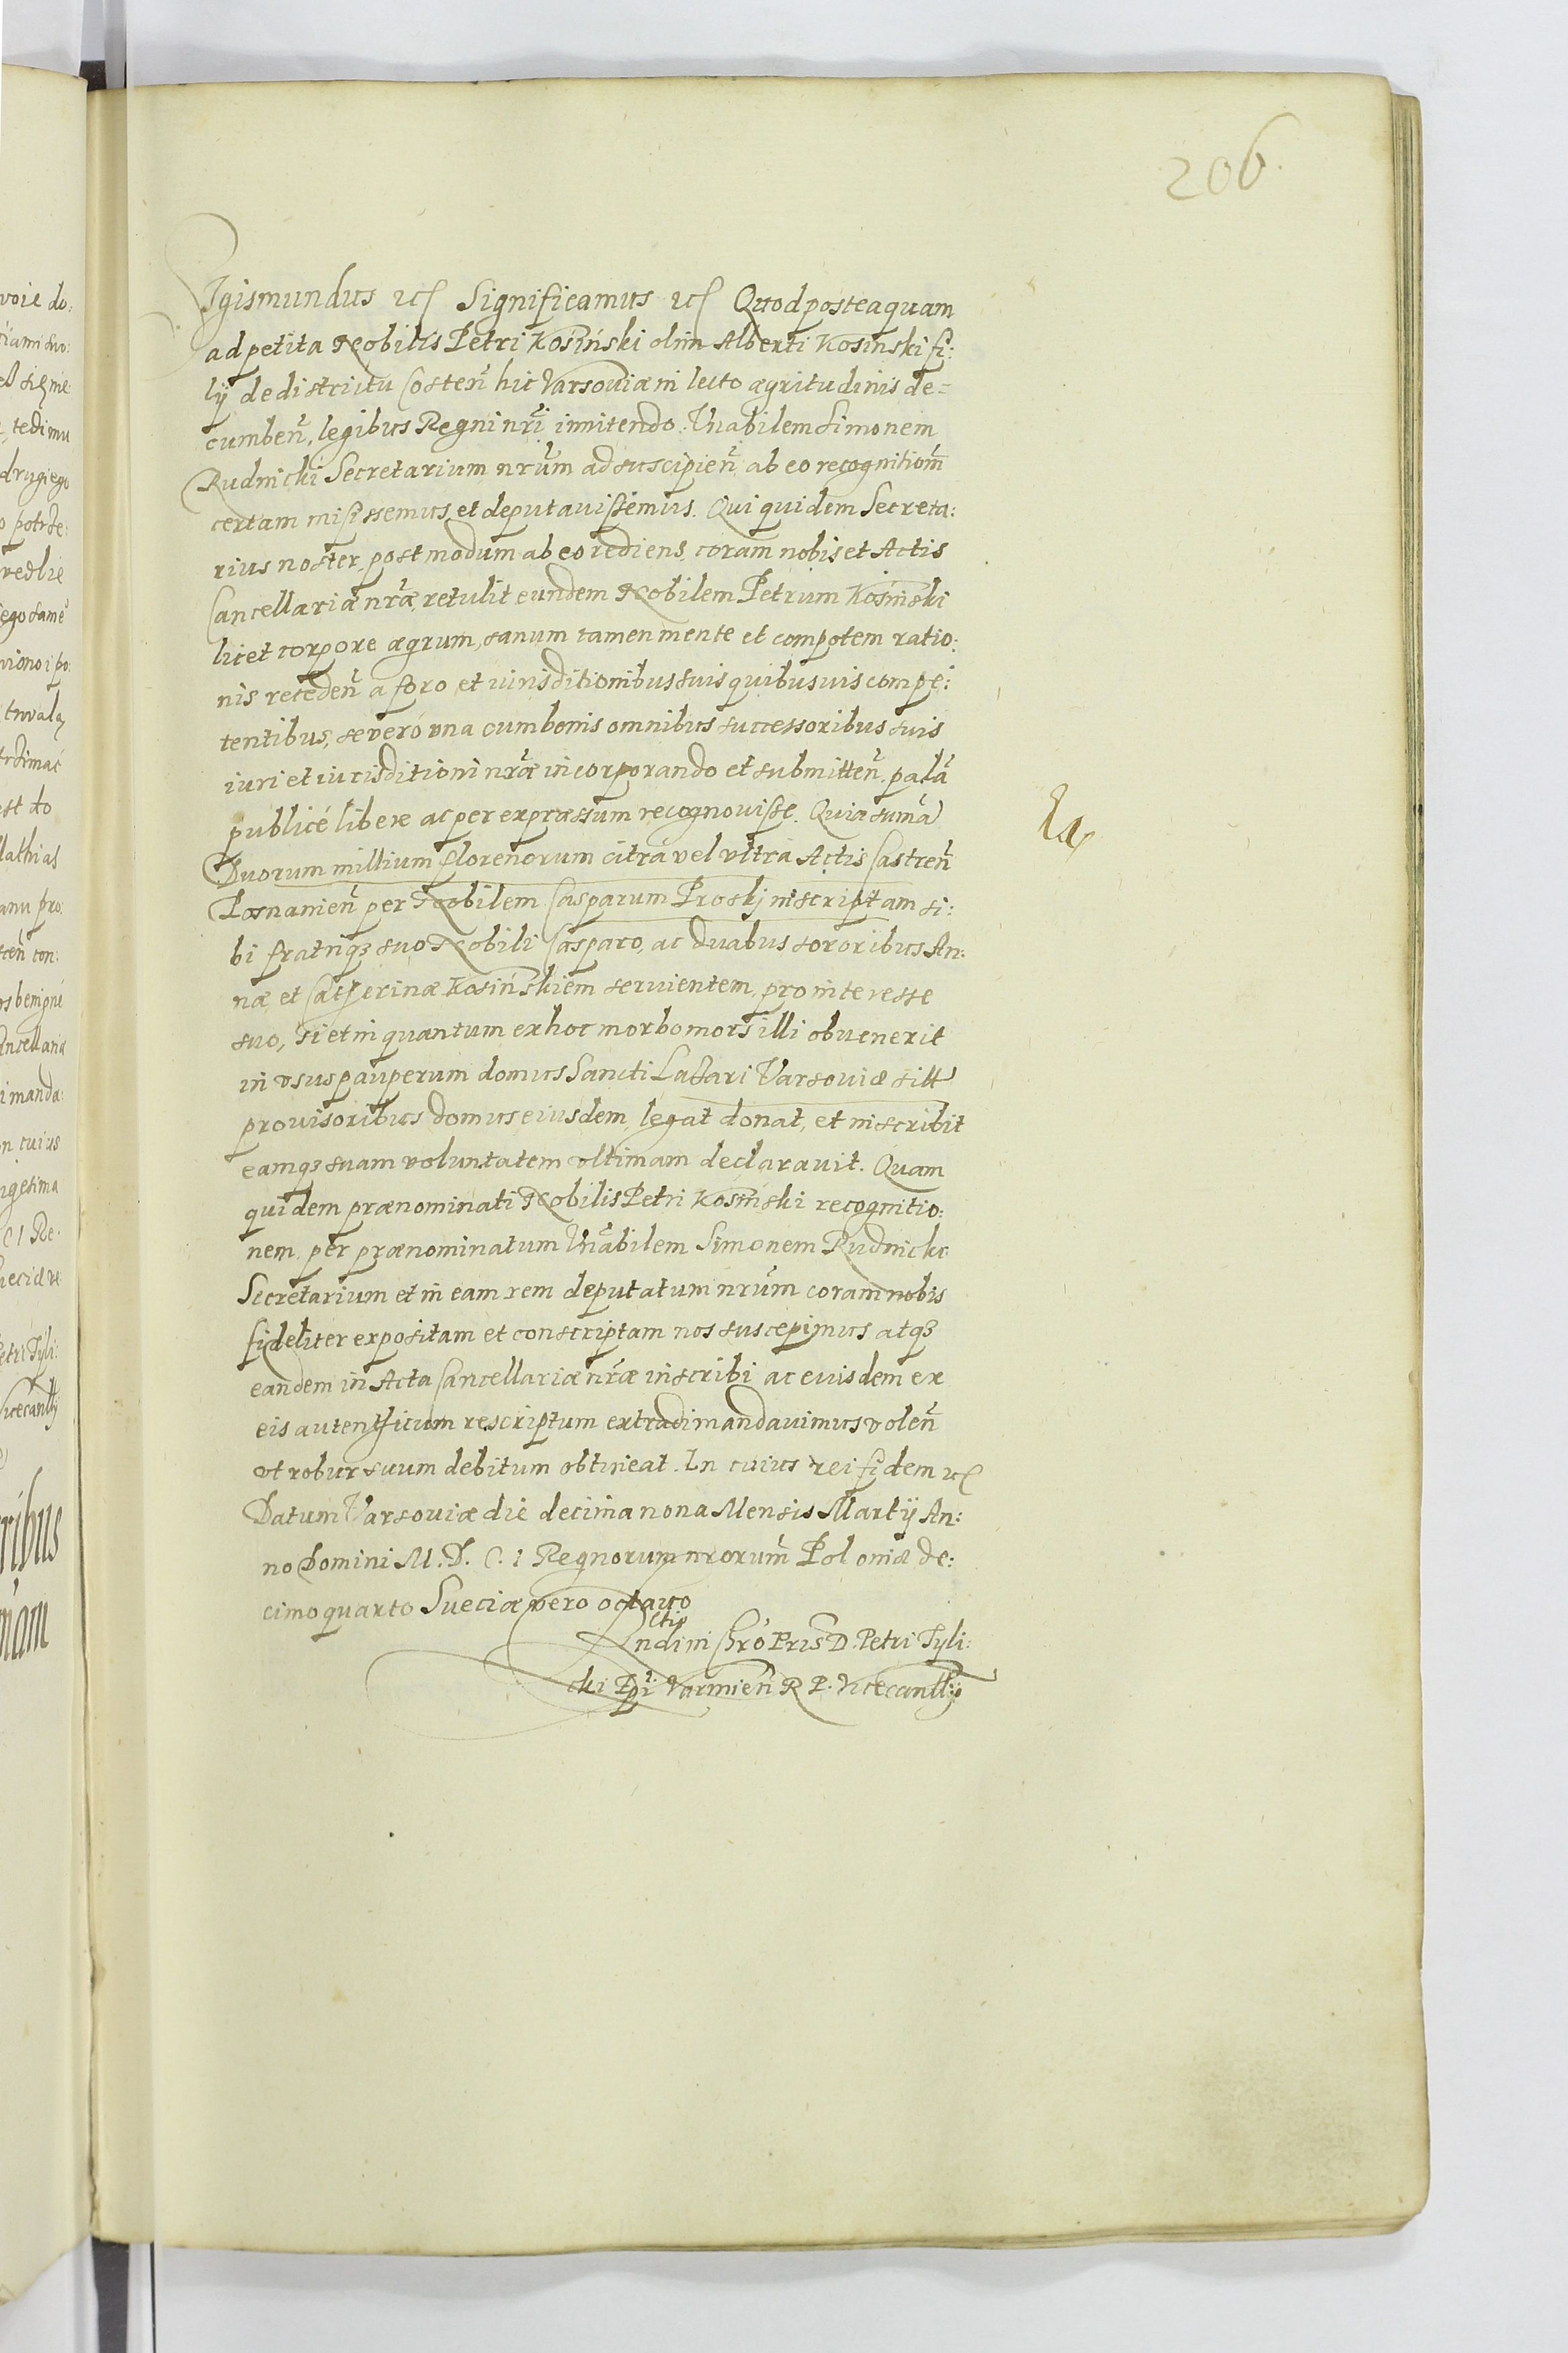 206.
Sigismundus etc Significamus etc Quod posteaquam
ad petita Nobilis Petri Kosiński olim Alberti Kosinski fi:
lÿ de districtu Costeñ hic Varsoviæ in lecto ægritudinis de=
cumbeñ, legibus Regni nr̃i innitendo. Vñabilem Simonem
Rudnicki Secretarium nrũm ad suscipieñ ab eo recognitiom̃
certam misissemus et deputavissemus. Qui quidem Secreta:
rius noster, postmodum ab eo rediens, coram nobis et Actis
Cancellariæ nrã̃e, retulit eundem Nobilem Petrum Kosiński
licet corpore ægrum, sanum tamen mente et compotem ratio:
nis recedeñ a foro et iurisditionibus suis quibusuis compe:
tentibus, se veró vna cum bonis omnibus successoribus suis
iuri et iurisditioni nrãe incorporando et submitteñ, palã
publicé libere ac per expræssum recognovisse. Quia sum̃a
Duorum millium florenorum citra vel vltra Actis Castreñ
Posnanieñ per Nobilem Casparum Proskj inscriptam si:
bi fratriqz suo Nobili Casparo, ac duabus sororibus An:
næ et Catherinæ Kosińskiem servientem, pro interesse
suo, si et in quantum ex hoc morbo mors illi obvenerit
in vsus pauperum domus Sancti Lazari Varsoviæ sitt
provisoribus domus eiusdem, legat donat, et inscribit
eamqz suam voluntatem vltimam declaravit. Quam
quidem prænominati Nobilis Petri Kosinski recognitio:
nem, per prænominatum Vñabilem Simonem Rudnicki
Secretarium et in eam rem deputatum nrũm coram nobis
fideliter expositam et conscriptam nos suscepimus atqz
eandem in Acta Cancellariæ nrãe inscribi ac euisdem ex
eis autenthicum rescriptum extradi mandavimus voleñ
vt robur suum debitum obtineat. In cuius rei fidem etc
Datum Varsoviæ die decima nona Mensis Martÿ An:
no Domini M.D.C.I Regnorum nrorum̃ Poloniæ de:
cimo quarto Sueciæ vero octavo
R ctip
ndi in Chrõ Pris D. Petri Tyli:
cki Epi Varmieñ R P. Vicecancllÿ